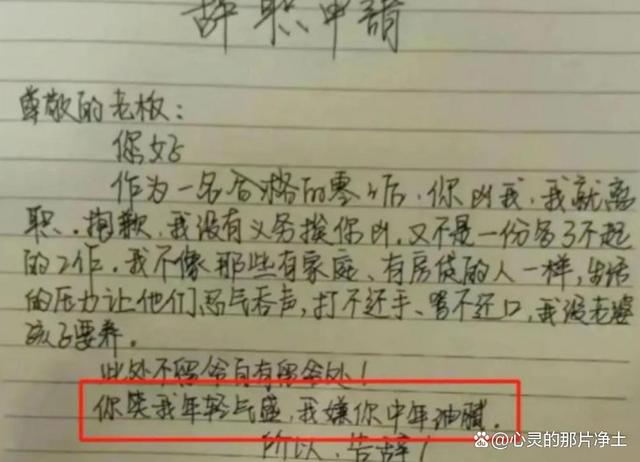 辞职申请
尊敬的老板：
您好
作为一名合格的零零后，你凶我，我就离
职。抱歉，我没有义务挨你凶，又不是一份多了不起
的工作。我不像那些有家庭、有房贷的人一样，生活
的压力让他们忍气吞声，打不还手、骂不还口，我没老婆
孩子要养。
此处不留爷自有留爷处！
你笑我年轻气盛，我嫌你中年油腻。
所以，告辞！
@心灵的那片净土